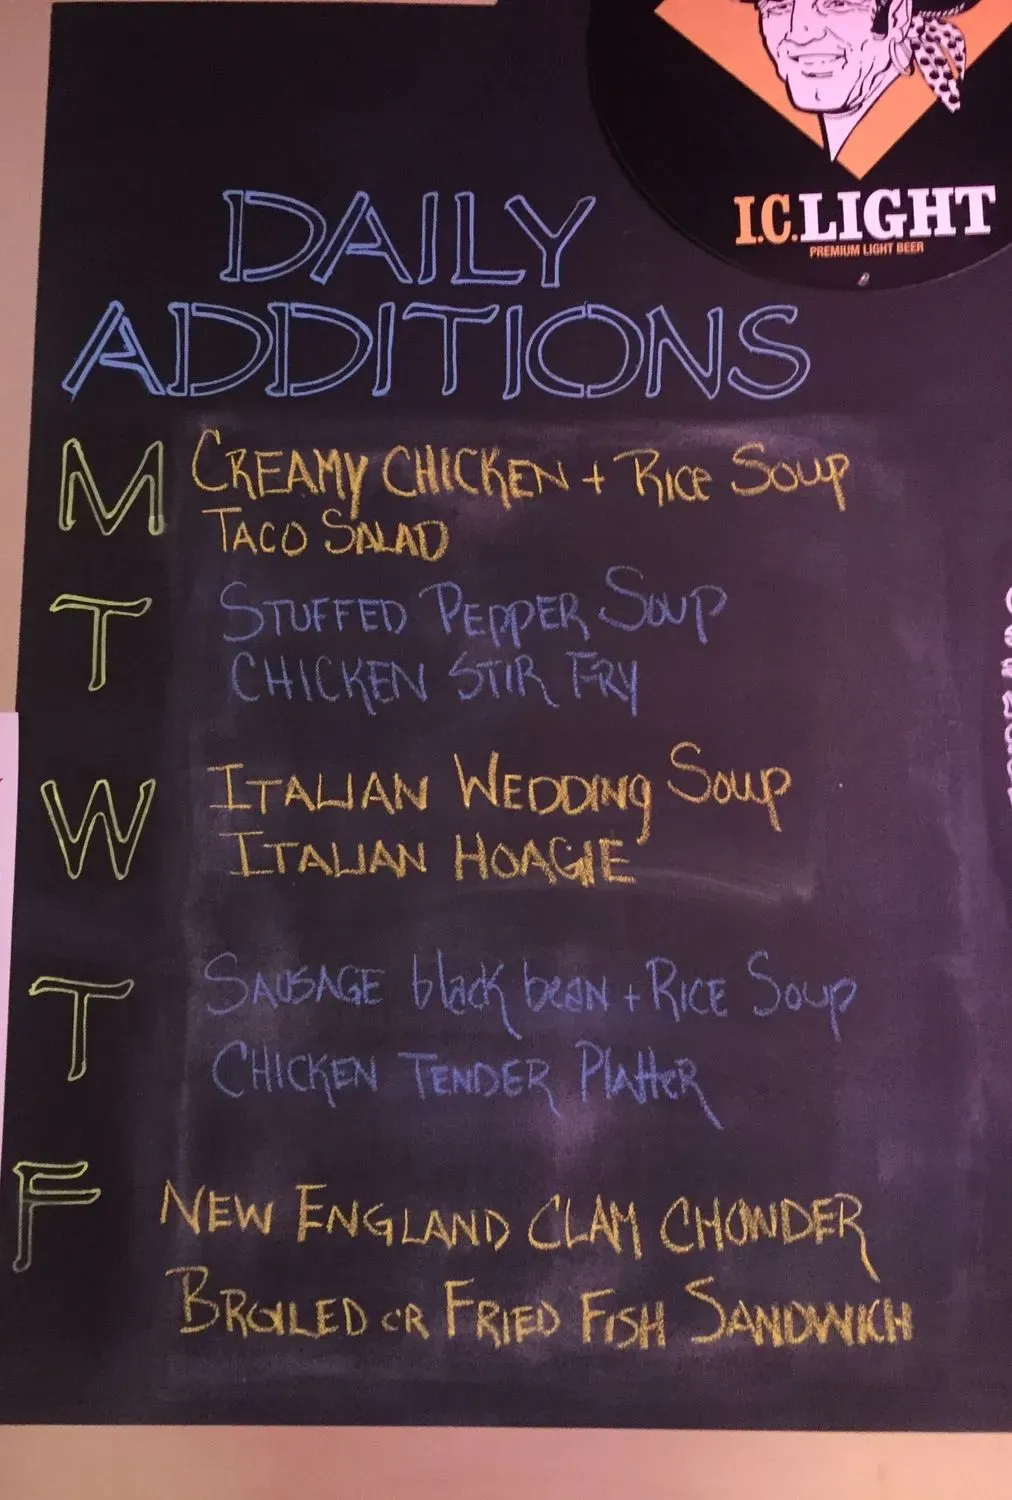 I.C.LIGHT
PREMIUM LIGHT BEER
DAILY
ADDITIONS
M
CREAMY CHICKEN + RICE SOUP
TACO SALAD
T
STUFFED PEPPER SOUP
CHICKEN STIR FRY
W
ITALIAN WEDDING SOUP
ITALIAN HOAGIE
T
SAUSAGE black bean + RICE SOUP
CHICKEN TENDER PlatteR
F
NEW ENGLAND CLAM CHOWDER
BROILED OR FRIED FISH SANDWICH